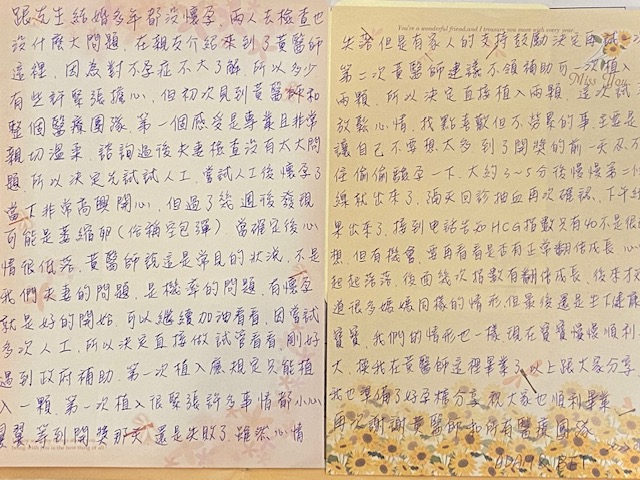 跟先生結婚多年都沒懷孕，兩人去檢查也
沒什麼大問題，在親友介紹來到了黃醫師
這裡，因為對不孕症不大了解，所以多少
有些許緊張擔心，但初次見到黃醫師和
整個醫療團隊，第一個感受是專業且非常
親切溫柔，諮詢過後夫妻檢查沒有太大問
題，所以決定先試試人工，嘗試人工後懷孕了
當下非常高興開心，但過了幾週後發現
可能是萎縮卵(俗稱空包彈)，當確定後心
情很低落，黃醫師說這是常見的狀況，不是
我們夫妻的問題，是機率的問題，有懷孕
就是好的開始，可以繼續加油看看，因嘗試
多次人工，所以決定直接做試管看看，剛好
遇到政府補助，第一次植入應規定只能植
入一顆，第一次植入很緊張許多事情都小心
翼翼，等到開獎那天，還是失敗了，雖然心情
You're a wonderful friend, and I treasure you more with every year
失落但是有家人的支持鼓勵決定再試一次
第二次黃醫師建議不領補助可一次植入
Miss You
兩顆，所以決定直接植入兩顆，這次試
放鬆心情，找點喜歡但不勞累的事，主要是
讓自己不要想太多，到了開獎的前一天忍不
住偷偷驗孕一下，大約3~5分後慢慢第二條
線就出來了，隔天回診抽血再次確認，下午結
果出來了，接到電話告知HCG指數只有40不是很理
想，但有機會，要再看看是否有正常翻倍成長，心
起起落落，後面幾次指數有翻倍成長，後來才知
道很多媽媽同樣的情形但最後還是生下健康
寶寶，我們的情形也一樣，現在寶寶慢慢順利
大，換我在黃醫師這裡畢業了，以上跟大家分享
我也準備了好孕棉分享，祝大家也順利畢業
再次謝謝黃醫師和所有醫療團隊